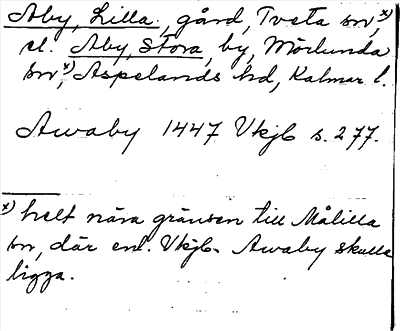 Åby, Lilla, gård, Tveta sn,x)
cl. Åby, Stora, by, Mörlunda
sn,x) Aspelands hd, Kalmar l.
Awaby 1447 Vkjb s. 277.
x) helt nära gränsen till Målilla
sn, där enl. Vkjb. Awaby skulle
ligga.